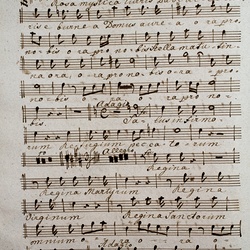 Rosa mystica
ris eburnea Domus aurea ora pro
nobis ora pro nobis stella matutina
na ora, ora pro nobis ora pro
nobis ora pro nobis
Adagio
Salus infirmo
rum Refugium peccatorum
Allegro
Regina
Regina Martyrum Regina
Virginum Regina Sanctorum
omnium ora
Adagio